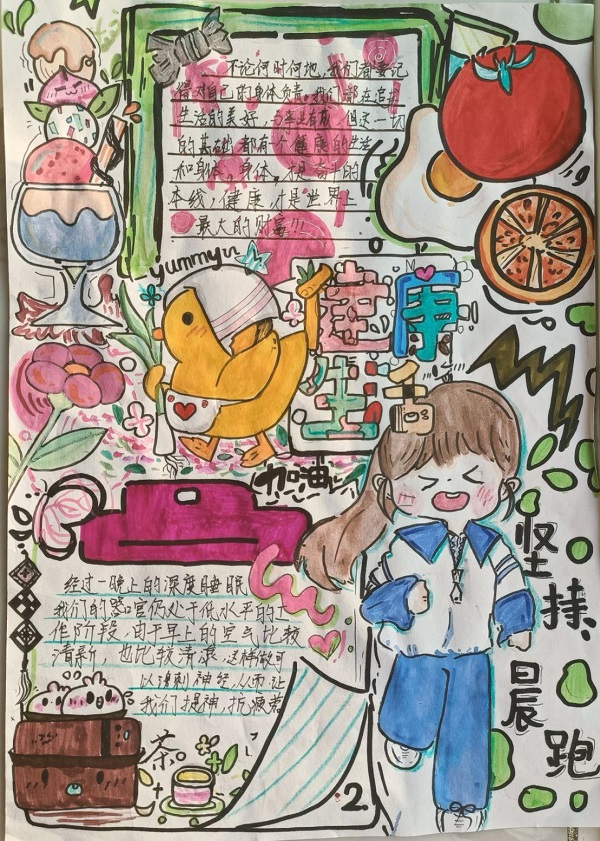 不论何时何地,我们都要记
得对自己的身体负责。我们都在追求
生活的美好,与事业有成,但这一切
的基础都有一个健康的生活
和身体,身体,才是奋斗的
本钱,健康,才是世界上
最大的财富!!
yummyu
健康
生活
加油
坚持、
晨跑
经过一晚上的深度睡眠
我们的器官仍处于低水平的工
作阶段,由于早上的空气比较
清新,也比较清凉,这样做可
以刺神经,从而让
我们提神,抗疲劳
茶。
2